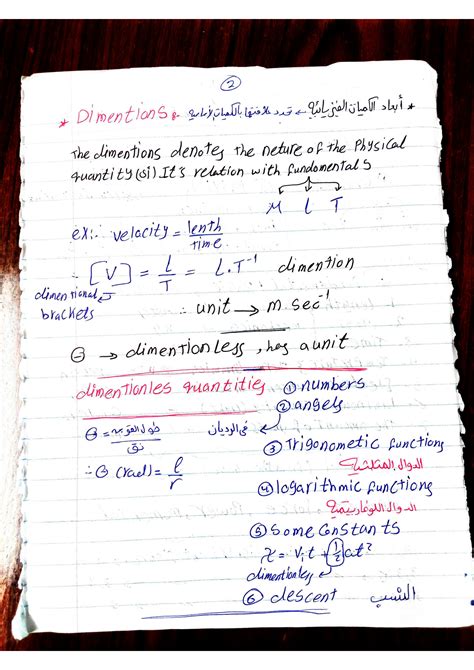 ②
* Dimentions :- أبعاد الكميات الفيزيائية → تحدد علاقتها بالكميات الأساسية *
The dimentions denotes the neture of the Physical
quantity (si) It's relation with fundomentals
M L T
ex:- velocity = lenth / time
∴ [V] = L / T = L.T⁻¹ dimention
dimentional brackets
∴ unit → m.sec⁻¹
θ → dimentionless, has a unit
dimentionles quantities ① numbers
② angels
θ = طول القوس / نق في الرديان
③ Trigonometic functions
∴ θ (rad) = l / r
الدوال المثلثية
④ logarithmic functions
الدوال اللوغاريتمية
⑤ some constants
x = Vit + 1/2 at²
dimentionless
⑥ descent النسب